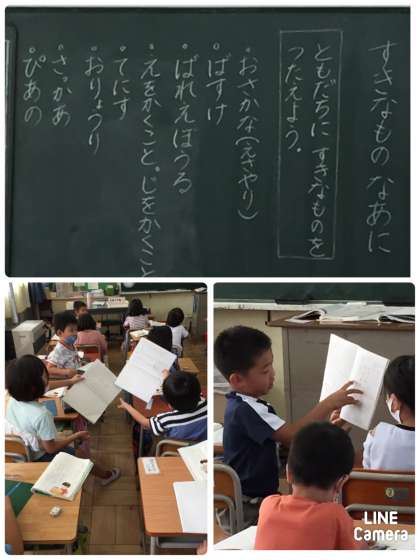 すきなもの なあに
ともだちに すきなものを
つたえよう。
・おさかな(えさやり)
・ばすけ
・ばれえぼうる
・えをかくこと。じをかくこと
・てにす
・おりょうり
・さっかあ
・ぴあの
LINE
Camera